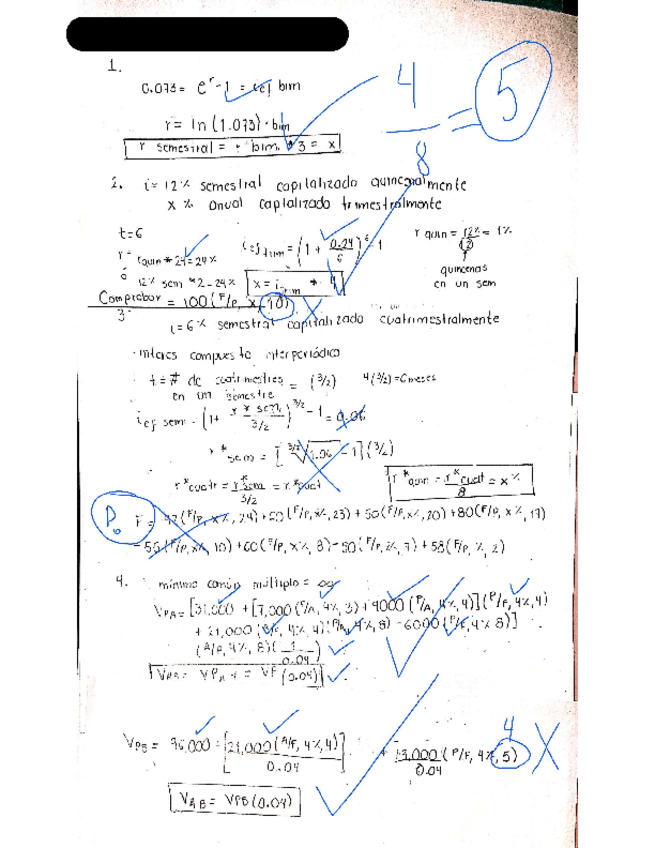 1.
0.073 = e^r - 1 = ief bim
r = ln (1.073) · bim
r semestral = r bim. * 3 = x
4/8 = 5
2. i = 12% semestral capitalizado quincenalmente
x % anual capitalizado trimestralmente
t=6
r = rquin * 24 = 24%
ó
12% sem * 2 = 24%
ief trim = (1 + 0.24/6)^6 - 1
x = i trim * 4
r quin = 12%/12 = 1%
quincenas
en un sem
Comprobar = 100 (F/P, x, 10)
3.
i = 6% semestral capitalizado cuatrimestralmente
· interes compuesto interperiódico
t = # de cuatrimestres en un semestre = (3/2) 4(3/2) = 6 meses
ief sem = (1 + r* sem/3/2)^3/2 - 1 = 0.06
r* sem = [3/2√1.06 - 1] (3/2)
r* cuatr = r* sem/3/2 = r* cuat
r* quin = r* cuat/8 = x %
P0
F = (F/P, x%, 24) + 50 (F/P, x%, 23) + 50 (F/P, x%, 20) + 80 (F/P, x%, 17)
- 55 (F/P, x%, 10) + 60 (F/P, x%, 8) - 50 (F/P, x%, 7) + 58 (F/P, %, 2)
4. mínimo común múltiplo =
VPA = [31,000 + [7,000 (P/A, 4%, 3) + 9000 (P/A, 4%, 4)] (P/F, 4%, 4)
+ 21,000 (P/F, 4%, 4) (P/A, 4%, 8) - 6000 (P/F, 4% 8)]
(A/P, 4%, 8) (1/0.04)
VAA = VPA = VP (0.04)
VPB = 96,000 + [21,000 (A/F, 4%, 4)/0.04] + 13,000 (P/F, 4%, 5)/0.04
4
VAB = VPB (0.04)